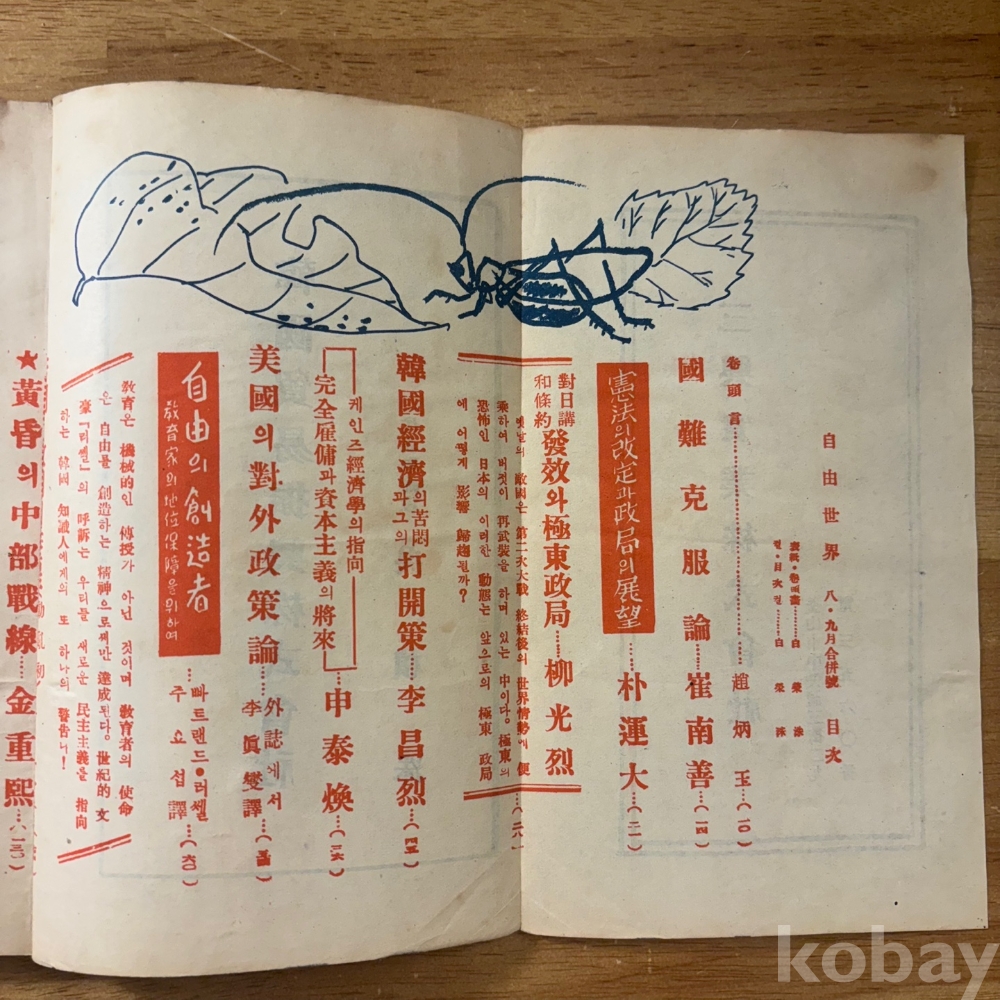 自由世界 八·九月合併號 目次
表紙·卷頭畫………白榮洙
컽·目次컽………白榮洙
卷頭言………趙炳玉…(一〇)
國難克服論…崔南善…(一四)
憲法의 改定과 政局의 展望
朴運大…(二一)
對日講和條約 發效와 極東政局……柳光烈…(二八)
옛날의 敵國은 第二次大戰 終結後의 世界情勢에 便
乘하여 버젓이 再武裝을 하며 있는 中이다. 極東의
恐怖인 日本의 이러한 動態는 앞으로의 極東 政局
에 어떻게 影響 歸趨될까?
韓國經濟의 苦悶과 그의 打開策……李昌烈…
케인즈經濟學의 指向
完全雇傭과 資本主義의 將來
申泰煥…(三六)
美國의 對外政策論……外誌에서
李眞燮譯…
自由의 創造者
敎育家의 地位保障을 위하여
빠트랜드·러쎌
주요섭譯…
敎育은 機械的인 傳授가 아닌 것이며 敎育者의 使命
은 自由를 創造하는 精神으로써만 達成된다. 世紀的 文
豪「러쎌」의 呼訴는 우리를 새로운 民主主義를 指向
하는 韓國 知識人에게의 또 하나의 警告니!
★黃昏의 中部戰線……金重熙…
kobay